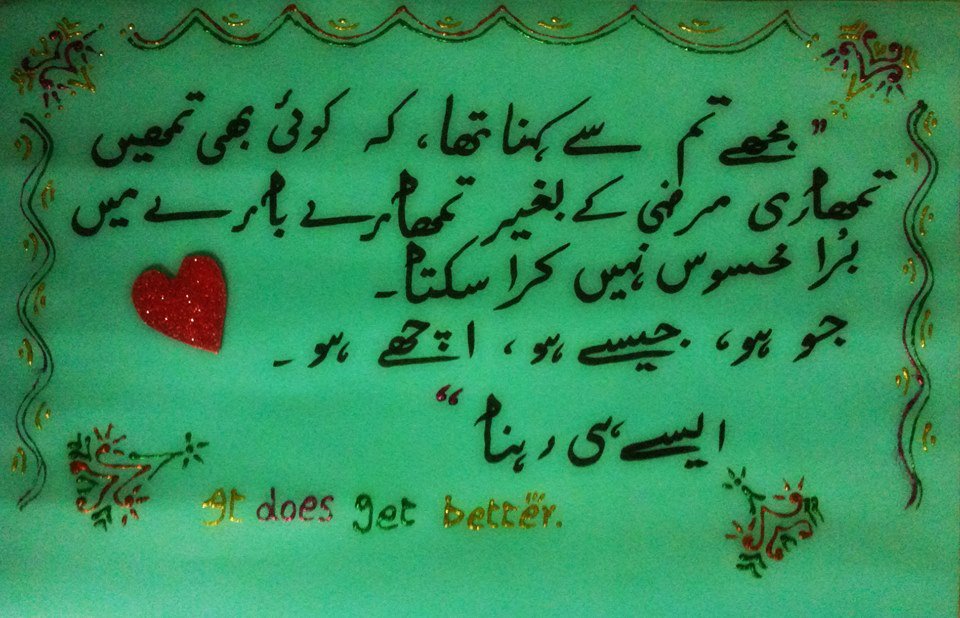 "مجھے تم سے کہنا تھا، کہ کوئی بھی تمھیں
تمھاری مرضی کے بغیر تمھارے بارے میں
بُرا محسوس نہیں کرا سکتا۔
جو ہو، جیسے ہو، اچھے ہو۔
ایسے ہی رہنا"
It does get better.